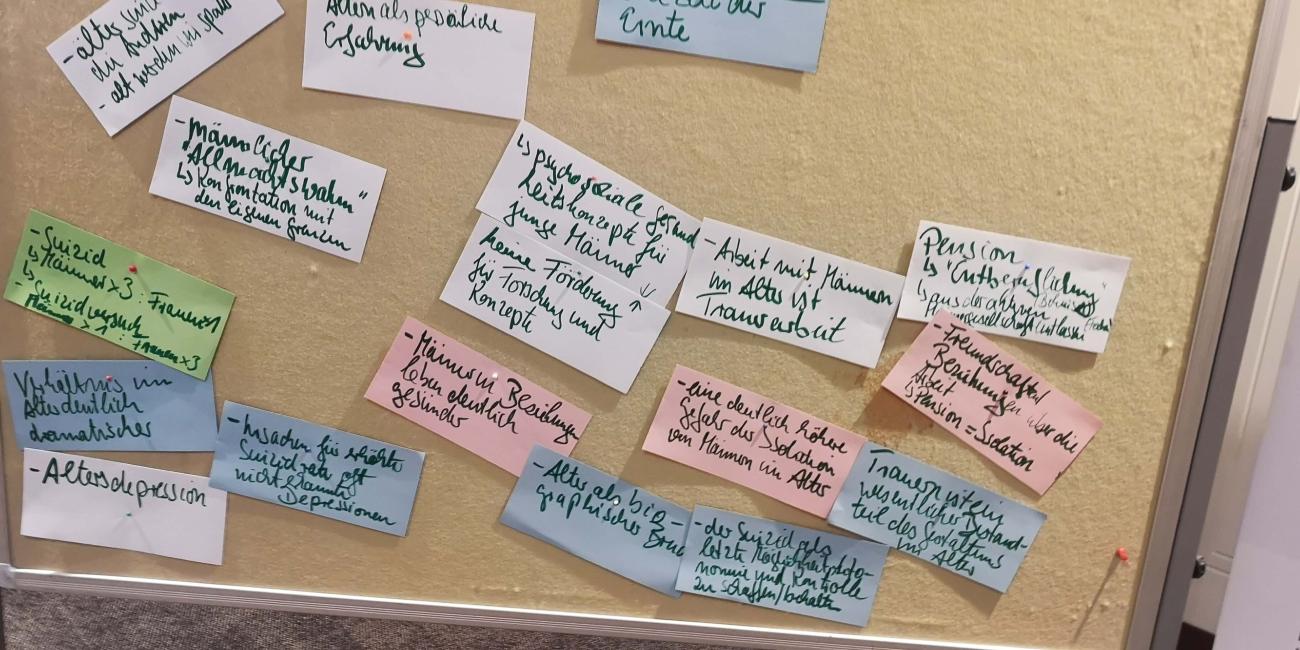 - älter sind
die Anderen
- alt werden wir später
Altern als persönliche
Erfahrung
Ernte
- männlicher
"Allmachtswahn"
↳ Konfrontation mit
den eigenen Grenzen
↳ psychosoziale Gesund
heitskonzepte für
junge Männer
keine Förderung
für Forschung und
Konzepte
- Arbeit mit Männern
im Alter ist
Trauerarbeit
Pension
↳ "Entberuflichung"
↳ aus der
- Suizid
↳ Männer x3 : Frauen x1
- Suizidversuch
Männer x 1 : Frauen x3
Verhältnis im
Alter deutlich
dramatischer
- Altersdepression
- Ursachen für erhöhte
Suizidrate oft
nicht erkannte
Depressionen
- Männer in Beziehungen
leben deutlich
gesünder
- eine deutlich höhere
Gefahr der Isolation
von Männern im Alter
- Freundschaften/
Beziehungen über die
Arbeit
↳ Pension = Isolation
- Alter als bio-
graphischer Bruch
- der Suizid als
letzte Möglichkeit Auto-
nomie und Kontrolle
zu schaffen/behalten
Trauern ist ein
wesentlicher Bestand-
teil des Gestaltens
im Alter